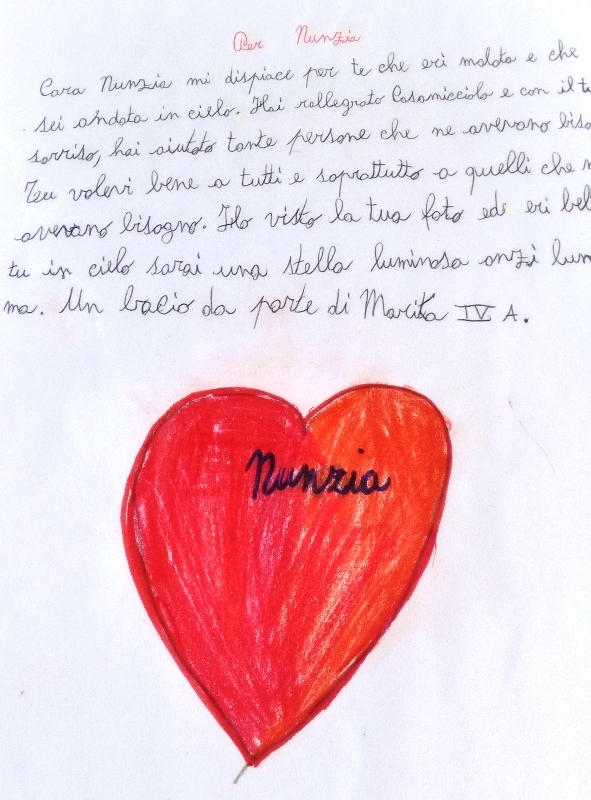 Per Nunzia
Cara Nunzia mi dispiace per te che eri malata e che
sei andata in cielo. Hai rallegrato Casamicciola e con il tu
sorriso, hai aiutato tante persone che ne avevano biso
Tu volevi bene a tutti e soprattutto a quelli che n
avevano bisogno. Ho visto la tua foto ed eri bel
tu in cielo sarai una stella luminosa anzi lum
ma. Un bacio da parte di Marika IV A.
Nunzia